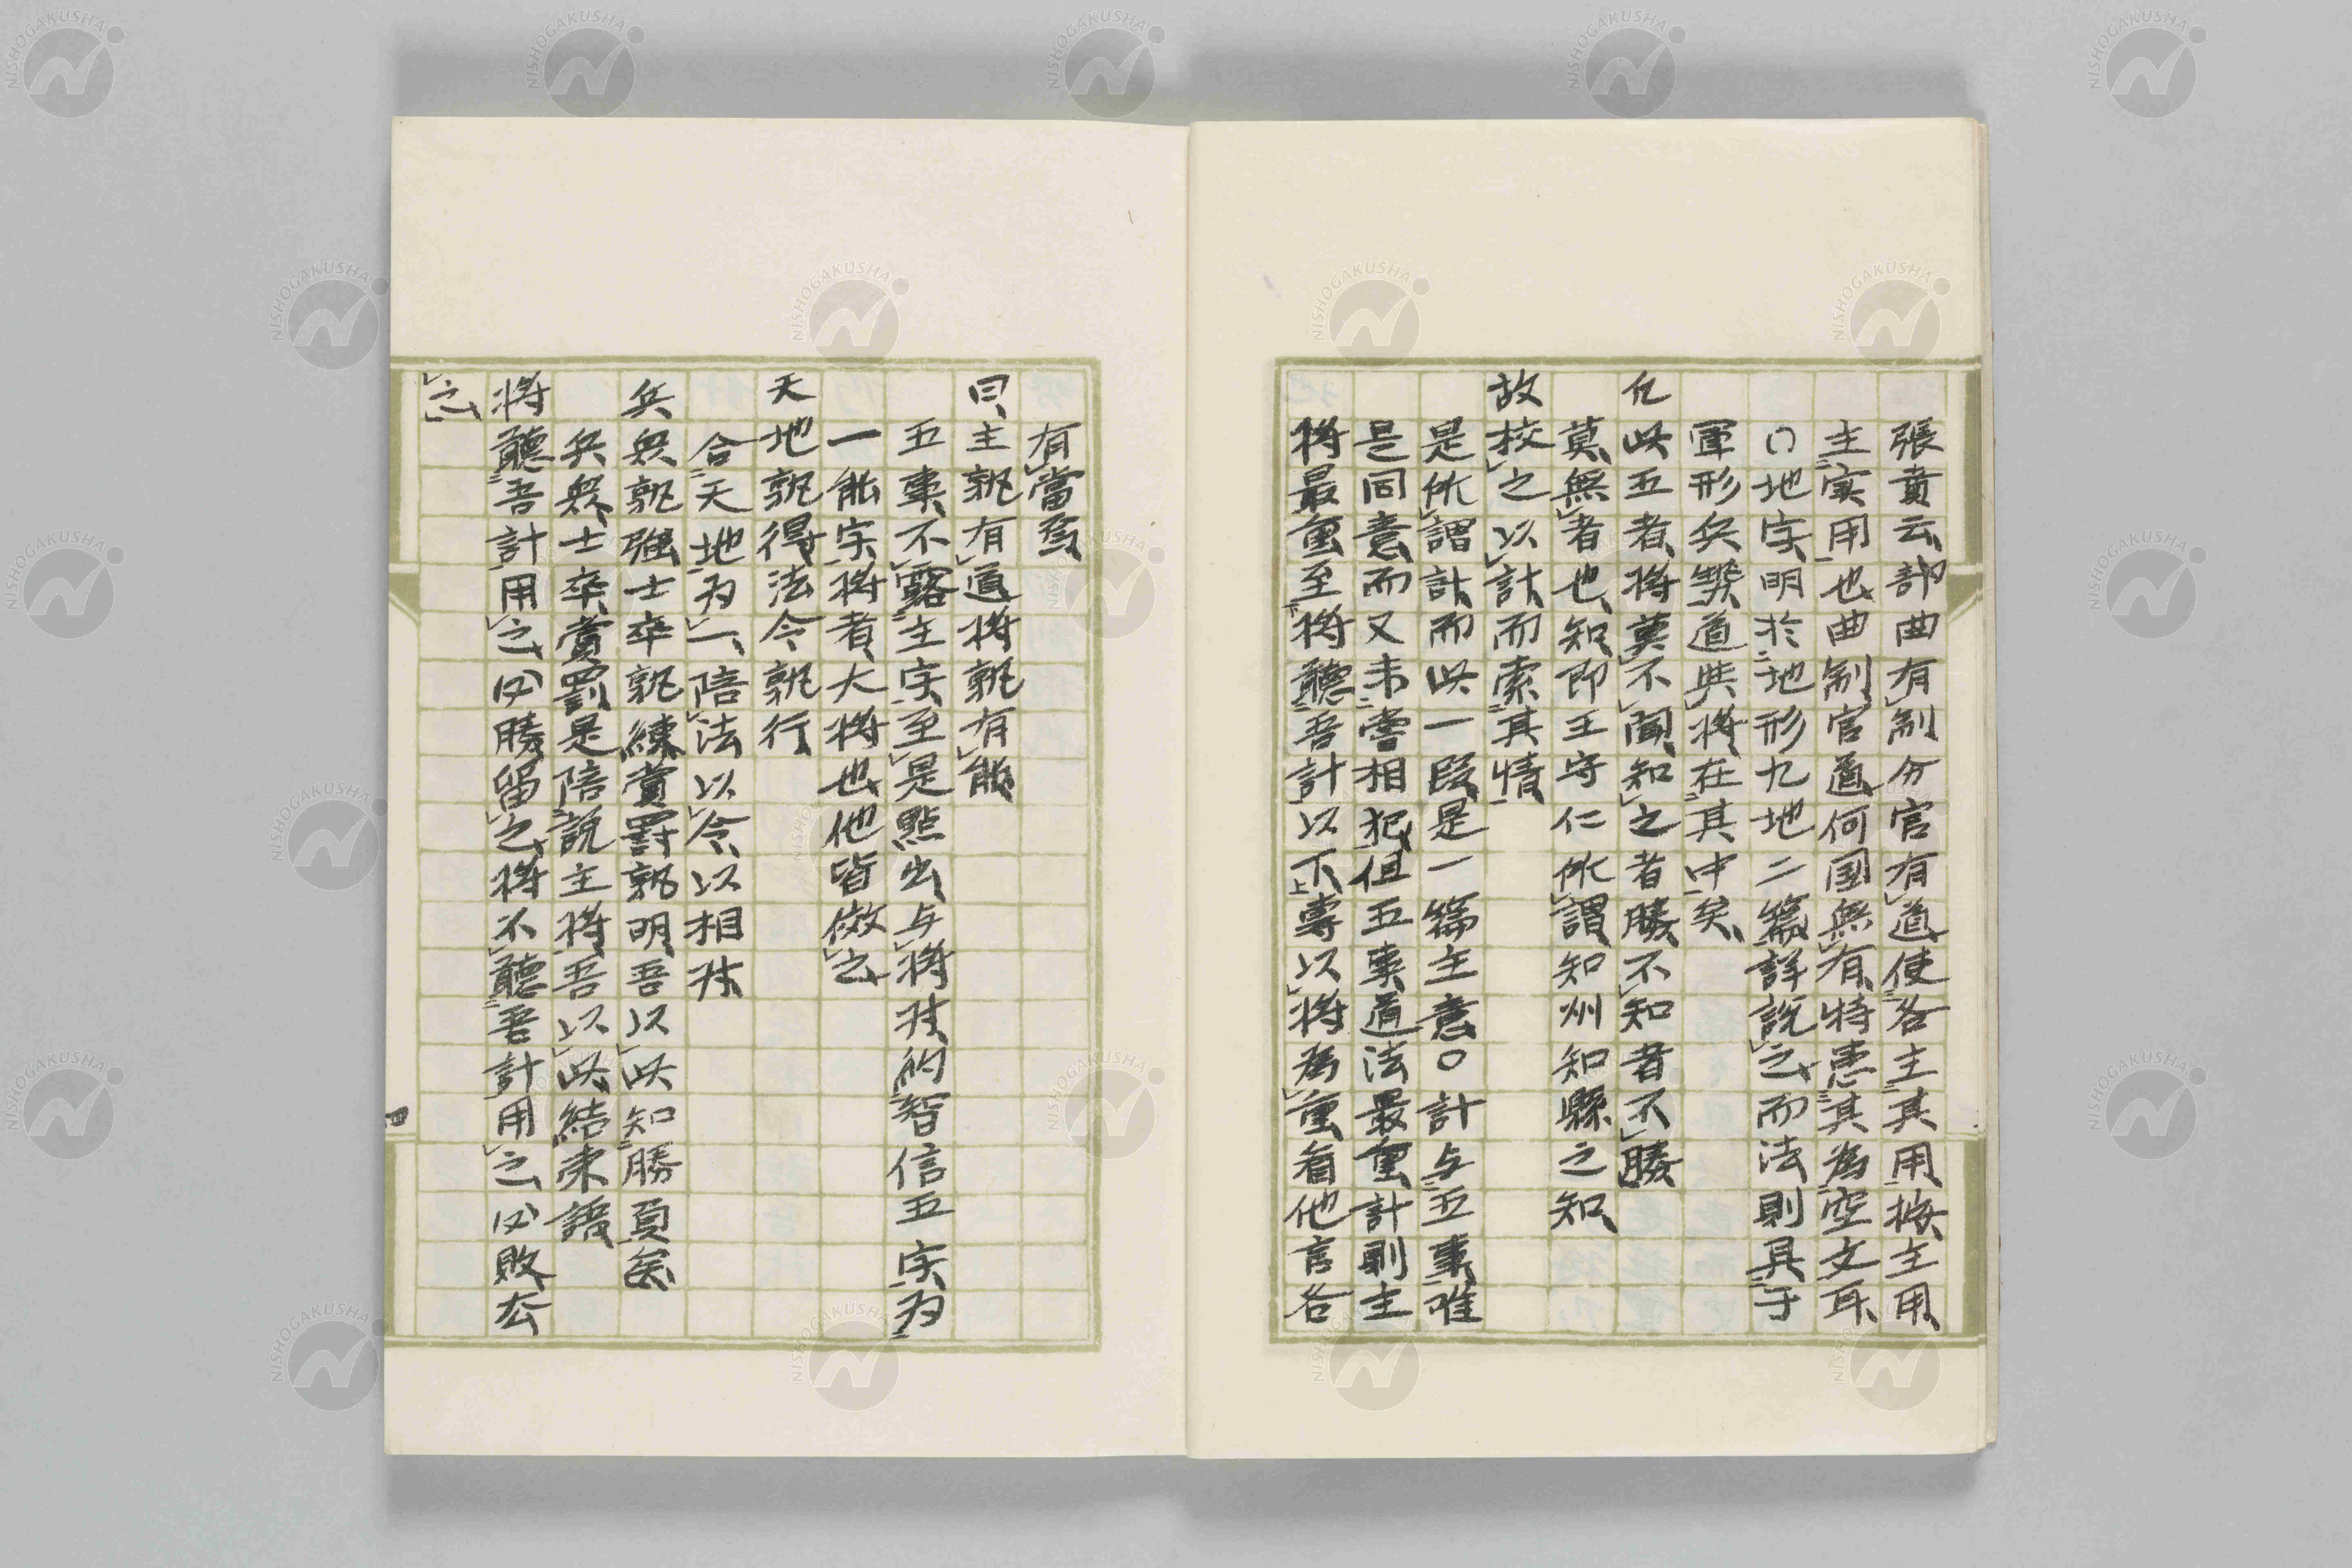 張賁云部曲有制分官有道使各主其用按主用
主実用也曲制官道何国無有特患其為空文耳
〇地字明於地形九地二篇詳説之而法則具于
軍形矣弊道與将在其中矣
凡此五者将莫不聞知之者勝不知者不勝
莫無者也知即王守仁所謂知州知縣之知
故校之以計而索其情
是所謂計而此一段是一篇主意〇計与五事唯
是同意而又未嘗相犯但五事道法最重計則主
将最重至将聽吾計以下專以将為重看他言各
有當焉
曰主孰有道将孰有能
五事不露主字至是點出与将対約智信五字为
一能字将者大将也他皆倣之
天地孰得法令孰行
合天地为一陪法以令以相対
兵衆孰强士卒孰練賞罰孰明吾以此知勝負矣
兵衆士卒賞罰是陪説主将吾以此結束語
将聽吾計用之必勝留之将不聽吾計用之必敗去
之
NISHOGAKUSHA